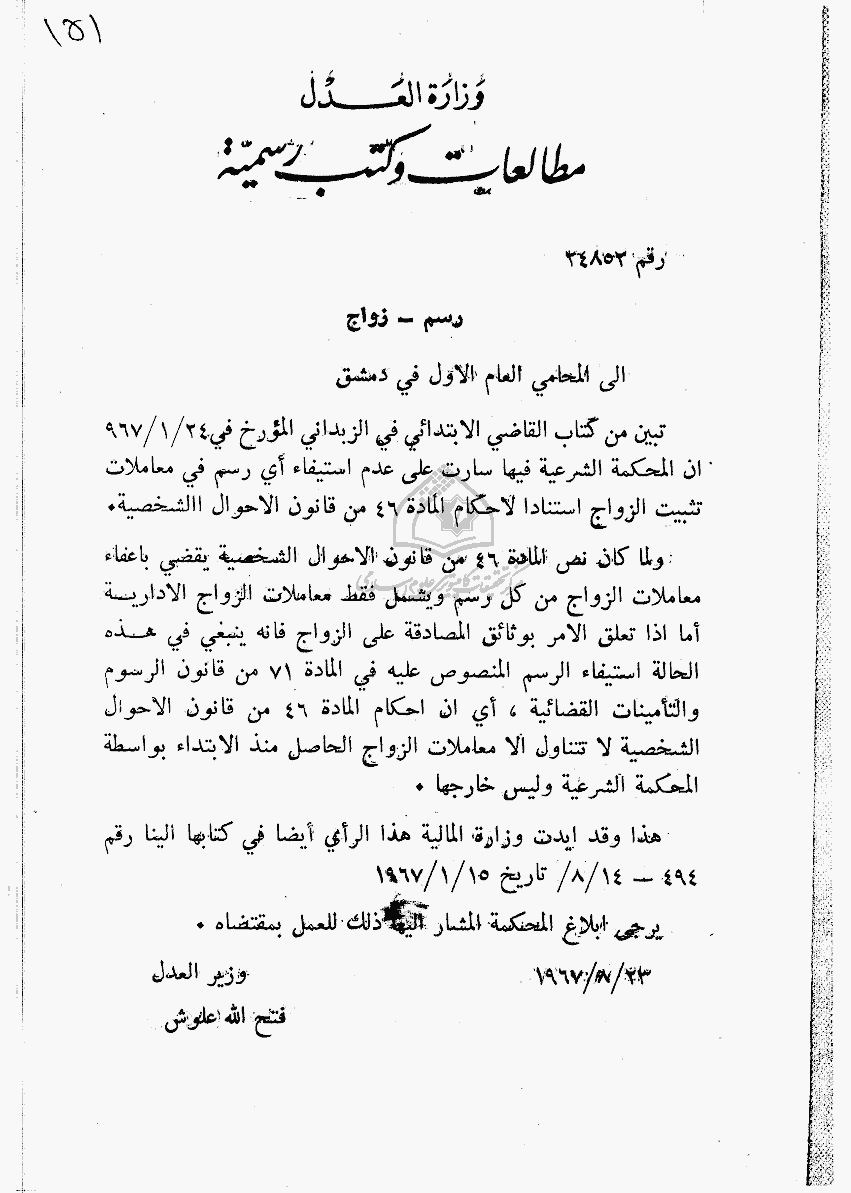 ١٥١
وزارة العـــدل
مطالعات وكتب رسمية
رقم ٣٤٨٥٢
رسم — زواج
الى المحامي العام الاول في دمشق
تبين من كتاب القاضي الابتدائي في الزبداني المؤرخ في ٢٤/١/٩٦٧
ان المحكمة الشرعية فيها سارت على عدم استيفاء أي رسم في معاملات
تثبيت الزواج استنادا لاحكام المادة ٤٦ من قانون الاحوال االشخصية.
ولما كان نص المادة ٤٦ من قانون الاحوال الشخصية يقضي باعفاء
معاملات الزواج من كل رسم ويشمل فقط معاملات الزواج الاداريــة
أما اذا تعلق الامر بوثائق المصادقة على الزواج فانه ينبغي في هــذه
الحالة استيفاء الرسم المنصوص عليه في المادة ٧١ من قانون الرسوم
والتأمينات القضائية ، أي ان احكام المادة ٤٦ من قانون الاحوال
الشخصية لا تتناول الا معاملات الزواج الحاصل منذ الابتداء بواسطة
المحكمة الشرعية وليس خارجها .
هذا وقد ايدت وزارة المالية هذا الرأي أيضا في كتابها الينا رقم
٤٩٤ — ٨/١٤/ تاريخ ١٩٦٧/١/١٥
يرجى ابلاغ المحكمة المشار اليها ذلك للعمل بمقتضاه .
٢٣/٨/١٩٦٧
وزير العدل
فتح الله علوش